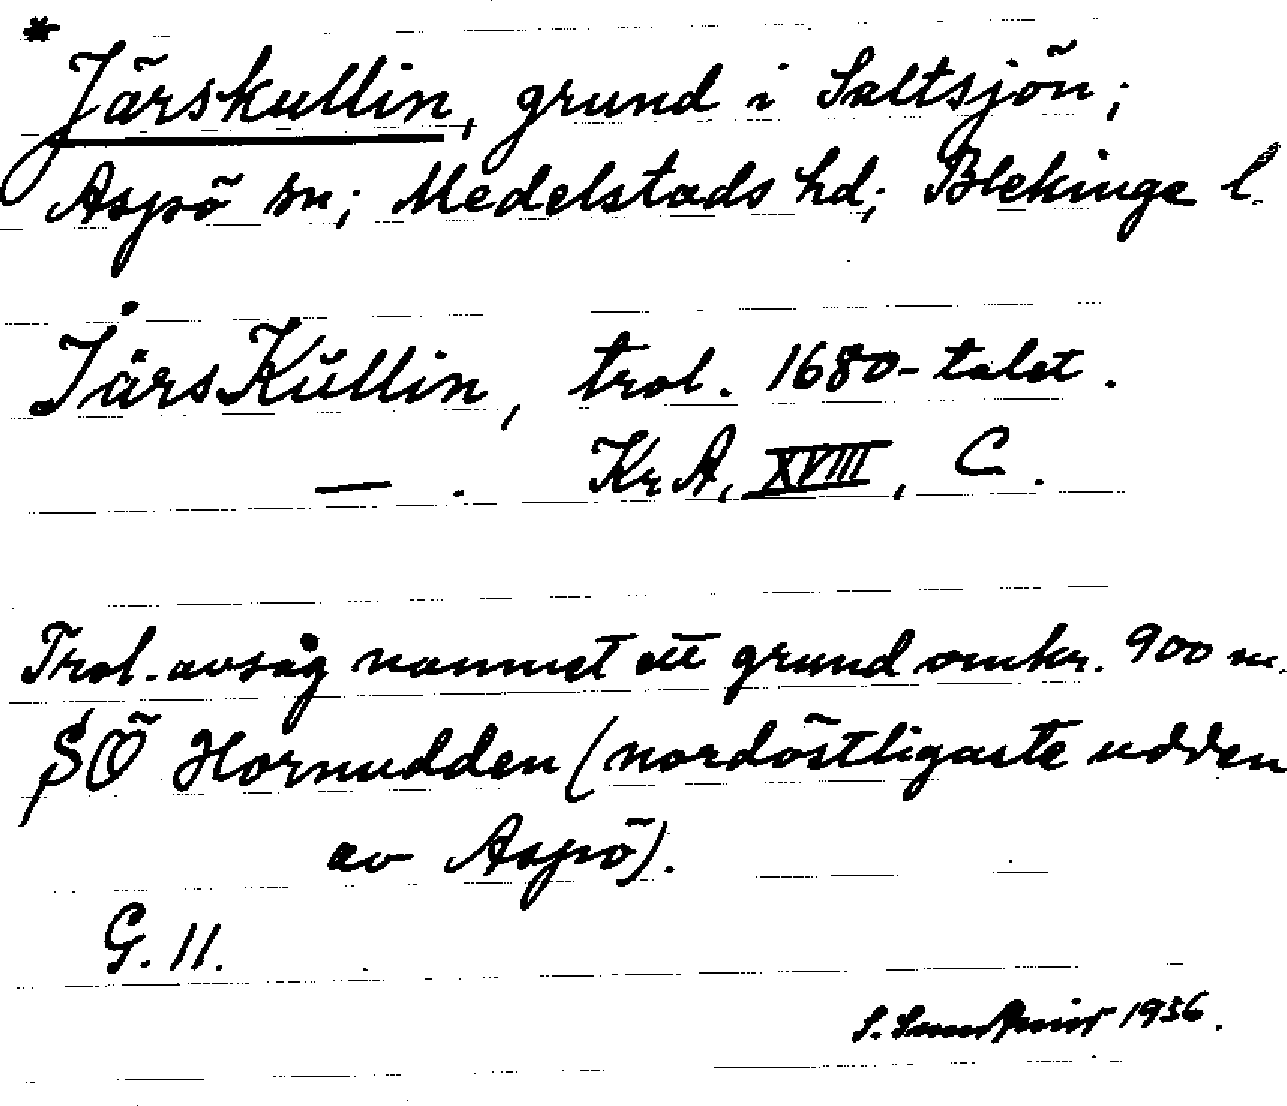 * Järskullin, grund i Saltsjön;
Aspö sn; Medelstads hd; Blekinge l.
JärsKŭllin, trol. 1680-talet.
— . KrA, XVIII, C.
Trol. avsåg namnet ett grund omkr. 900 m.
SÖ Hornudden (nordöstligaste udden
av Aspö).
G. 11.
S. 1936.